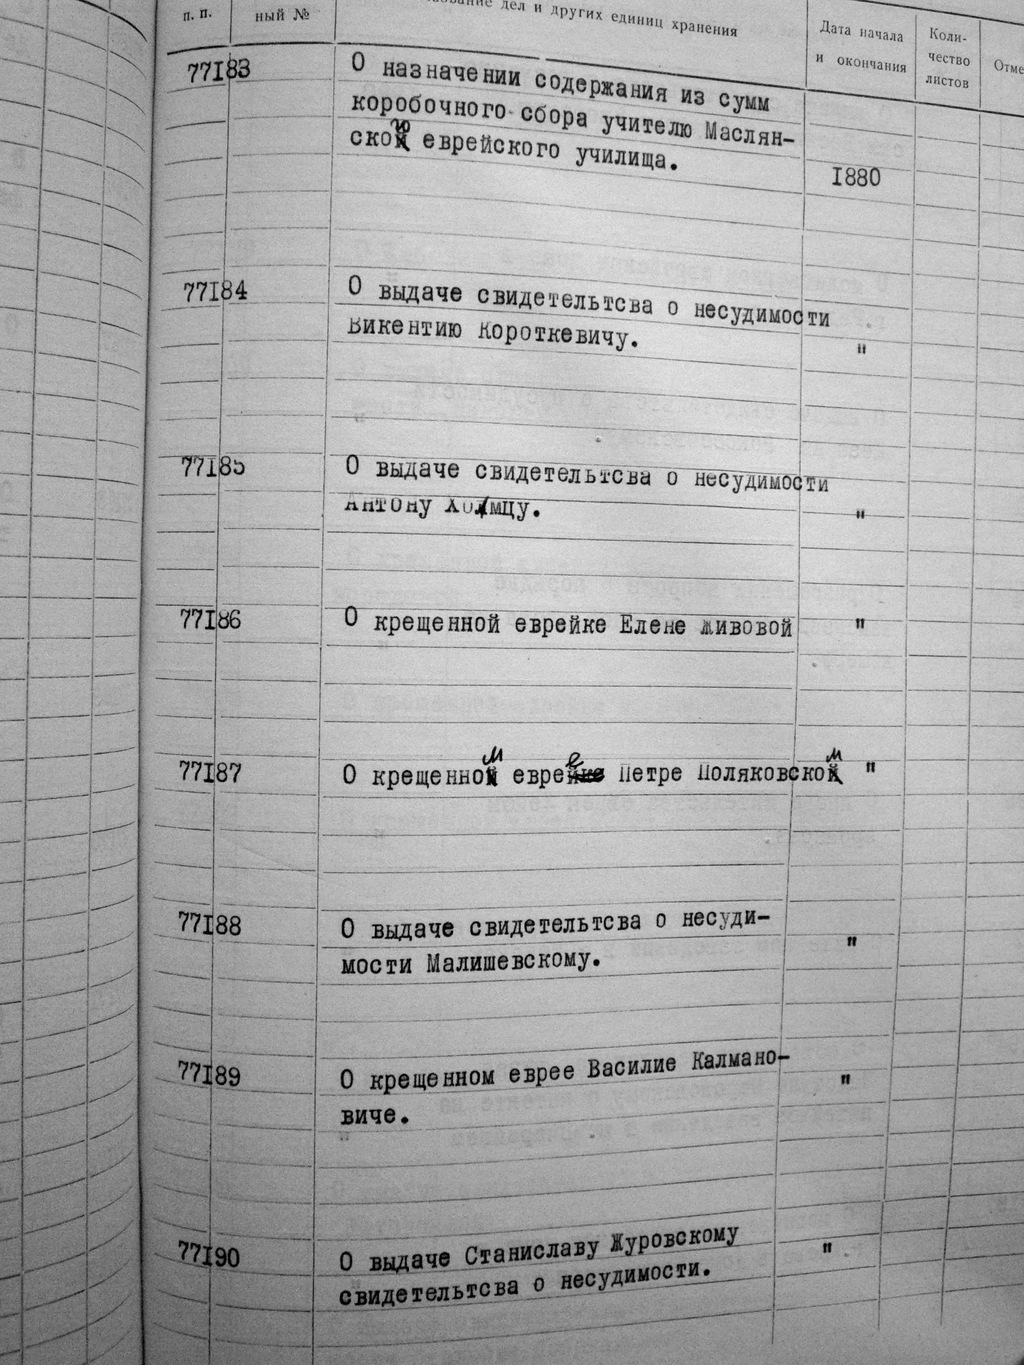 п. п.
ный №
дел и других единиц хранения
Дата начала
и окончания
Коли-
чество
листов
Отме
77183
О назначении содержания из сумм
коробочного сбора учителю Маслян-
ского еврейского училища.
1880
77184
О выдаче свидетельтсва о несудимости
Викентию Короткевичу.
"
77185
О выдаче свидетельтсва о несудимости
Антону
"
77186
О крещенной еврейке Елене Живовой
"
77187
О крещенном еврее Петре Поляковском
"
77188
О выдаче свидетельтсва о несуди-
мости Малишевскому.
"
77189
О крещенном еврее Василие Калмано-
виче.
"
77190
О выдаче Станиславу Журовскому
свидетельтсва о несудимости.
"